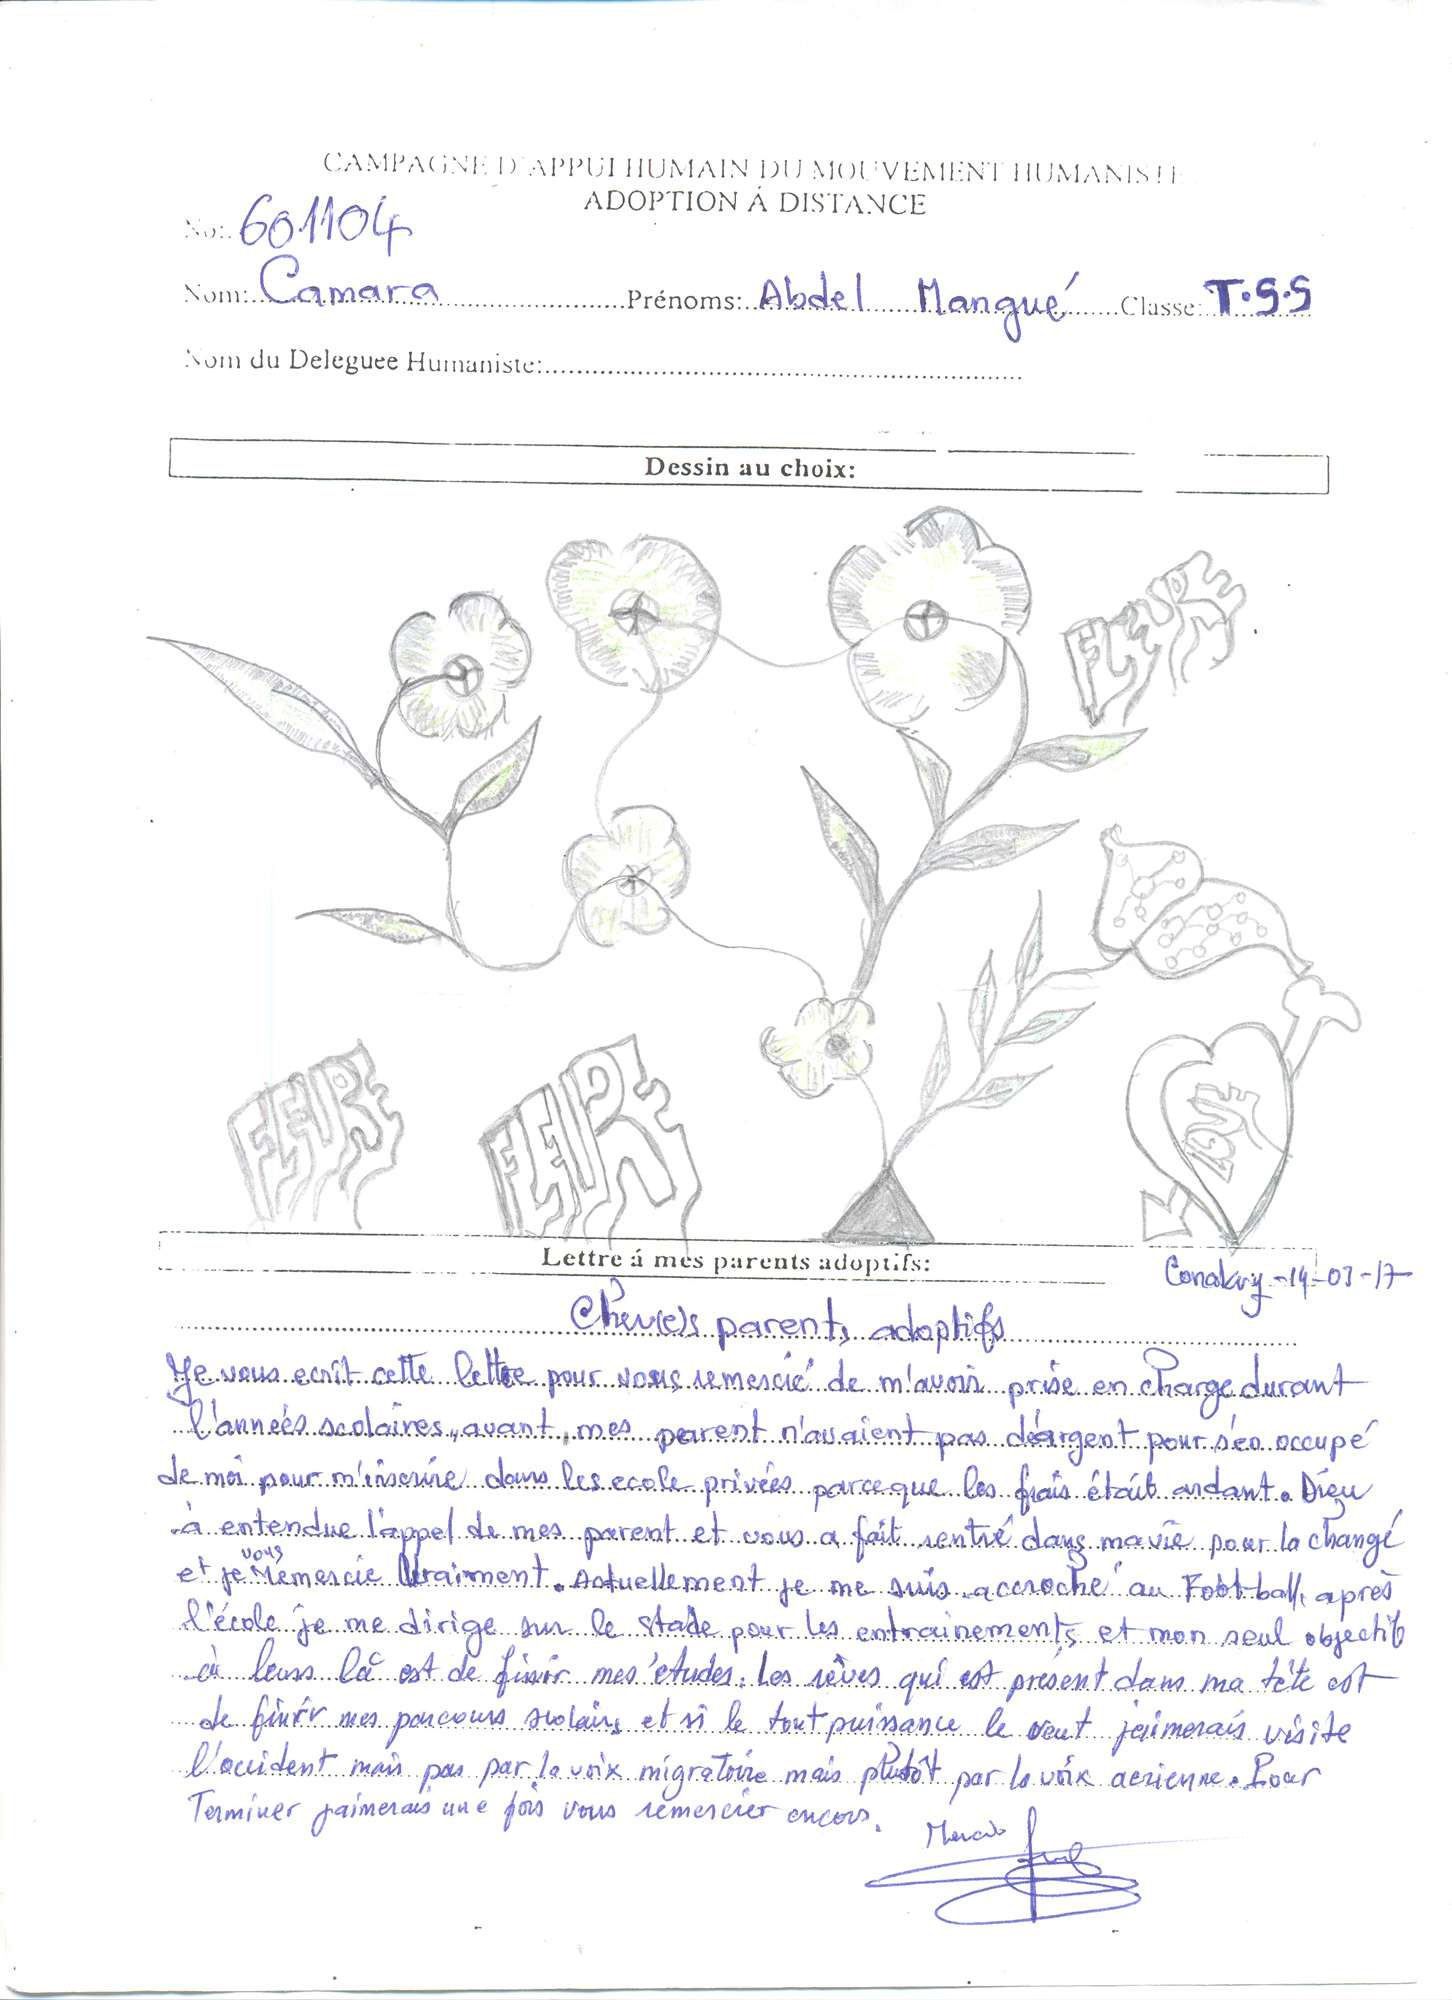 CAMPAGNE D'APPUI HUMAIN DU MOUVEMENT HUMANISTE
ADOPTION Á DISTANCE
No: 601104
Nom: Camara Prénoms: Abdel Mangué Classe: T.S.S
Nom du Deleguee Humaniste:
Dessin au choix:
FLEURE
FLEURE
FLEURE
LOVE
Lettre á mes parents adoptifs:
Conakry-14-03-17
Cher(e)s parents adoptifs
Je vous ecrit cette lettre pour vous remercié de m'avoir prise en charge durant
l'années scolaires, avant, mes parent n'avaient pas d'argent pour s'en occupé
de moi pour m'inscrire dans les ecole privées parceque les frais étaient
. Dieu
à entendue l'appel de mes parent et vous a fait rentré dans ma vie pour la changé
et je vous remercie vraiment. Actuellement je me suis accroché au Foot-ball, après
l'école je me dirige sur le stade pour les entrainements et mon seul objectif
à
là est de finir mes études. Les rêves qui est présent dans ma tête est
de finir mes parcours scolaire et si le tout puissance le veut j'aimerais visite
l'occident mais pas par la voix migratoire mais plutôt par la voix aerienne. Pour
Terminer j'aimerais une fois vous remercier encore.
Merci